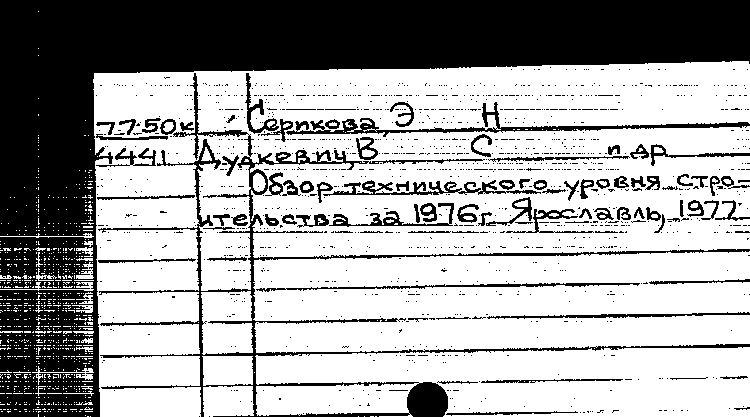 77-50к Серикова, Э Н
4441 Дудкевич, В С и др
Обзор технического уровня стро-
ительства за 1976г Ярославль, 1977